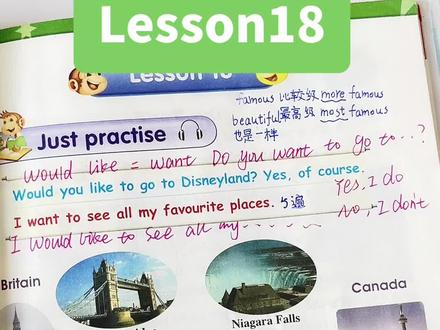 Lesson18
Lesson 18
famous 比较级 more famous
beautiful 最高级 most famous
也是一样
Just practise
would like = want Do you want to go to...?
Would you like to go to Disneyland? Yes, of course.
Yes, I do
I want to see all my favourite places. 5遍
No, I don't
I would like to see all my......
Britain
Canada
Niagara Falls